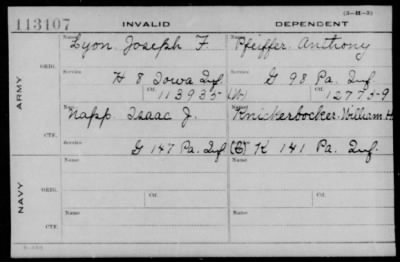 113107 INVALID (3-H-3) DEPENDENT
Name Lyon. Joseph F. Name Pfeiffer. Anthony
ORIG.
Service H 8 Iowa Inf. Service G 98 Pa. Inf.
Ctf. 113935 (W) Ctf. 127759
ARMY
Name Napp. Isaac J. Name Knickerbocker. William H
CTF.
Service G 147 Pa. Inf. (C) K 141 Pa. Inf.
Name Ctf. Name Ctf.
ORIG.
NAVY
Name Name
CTF.